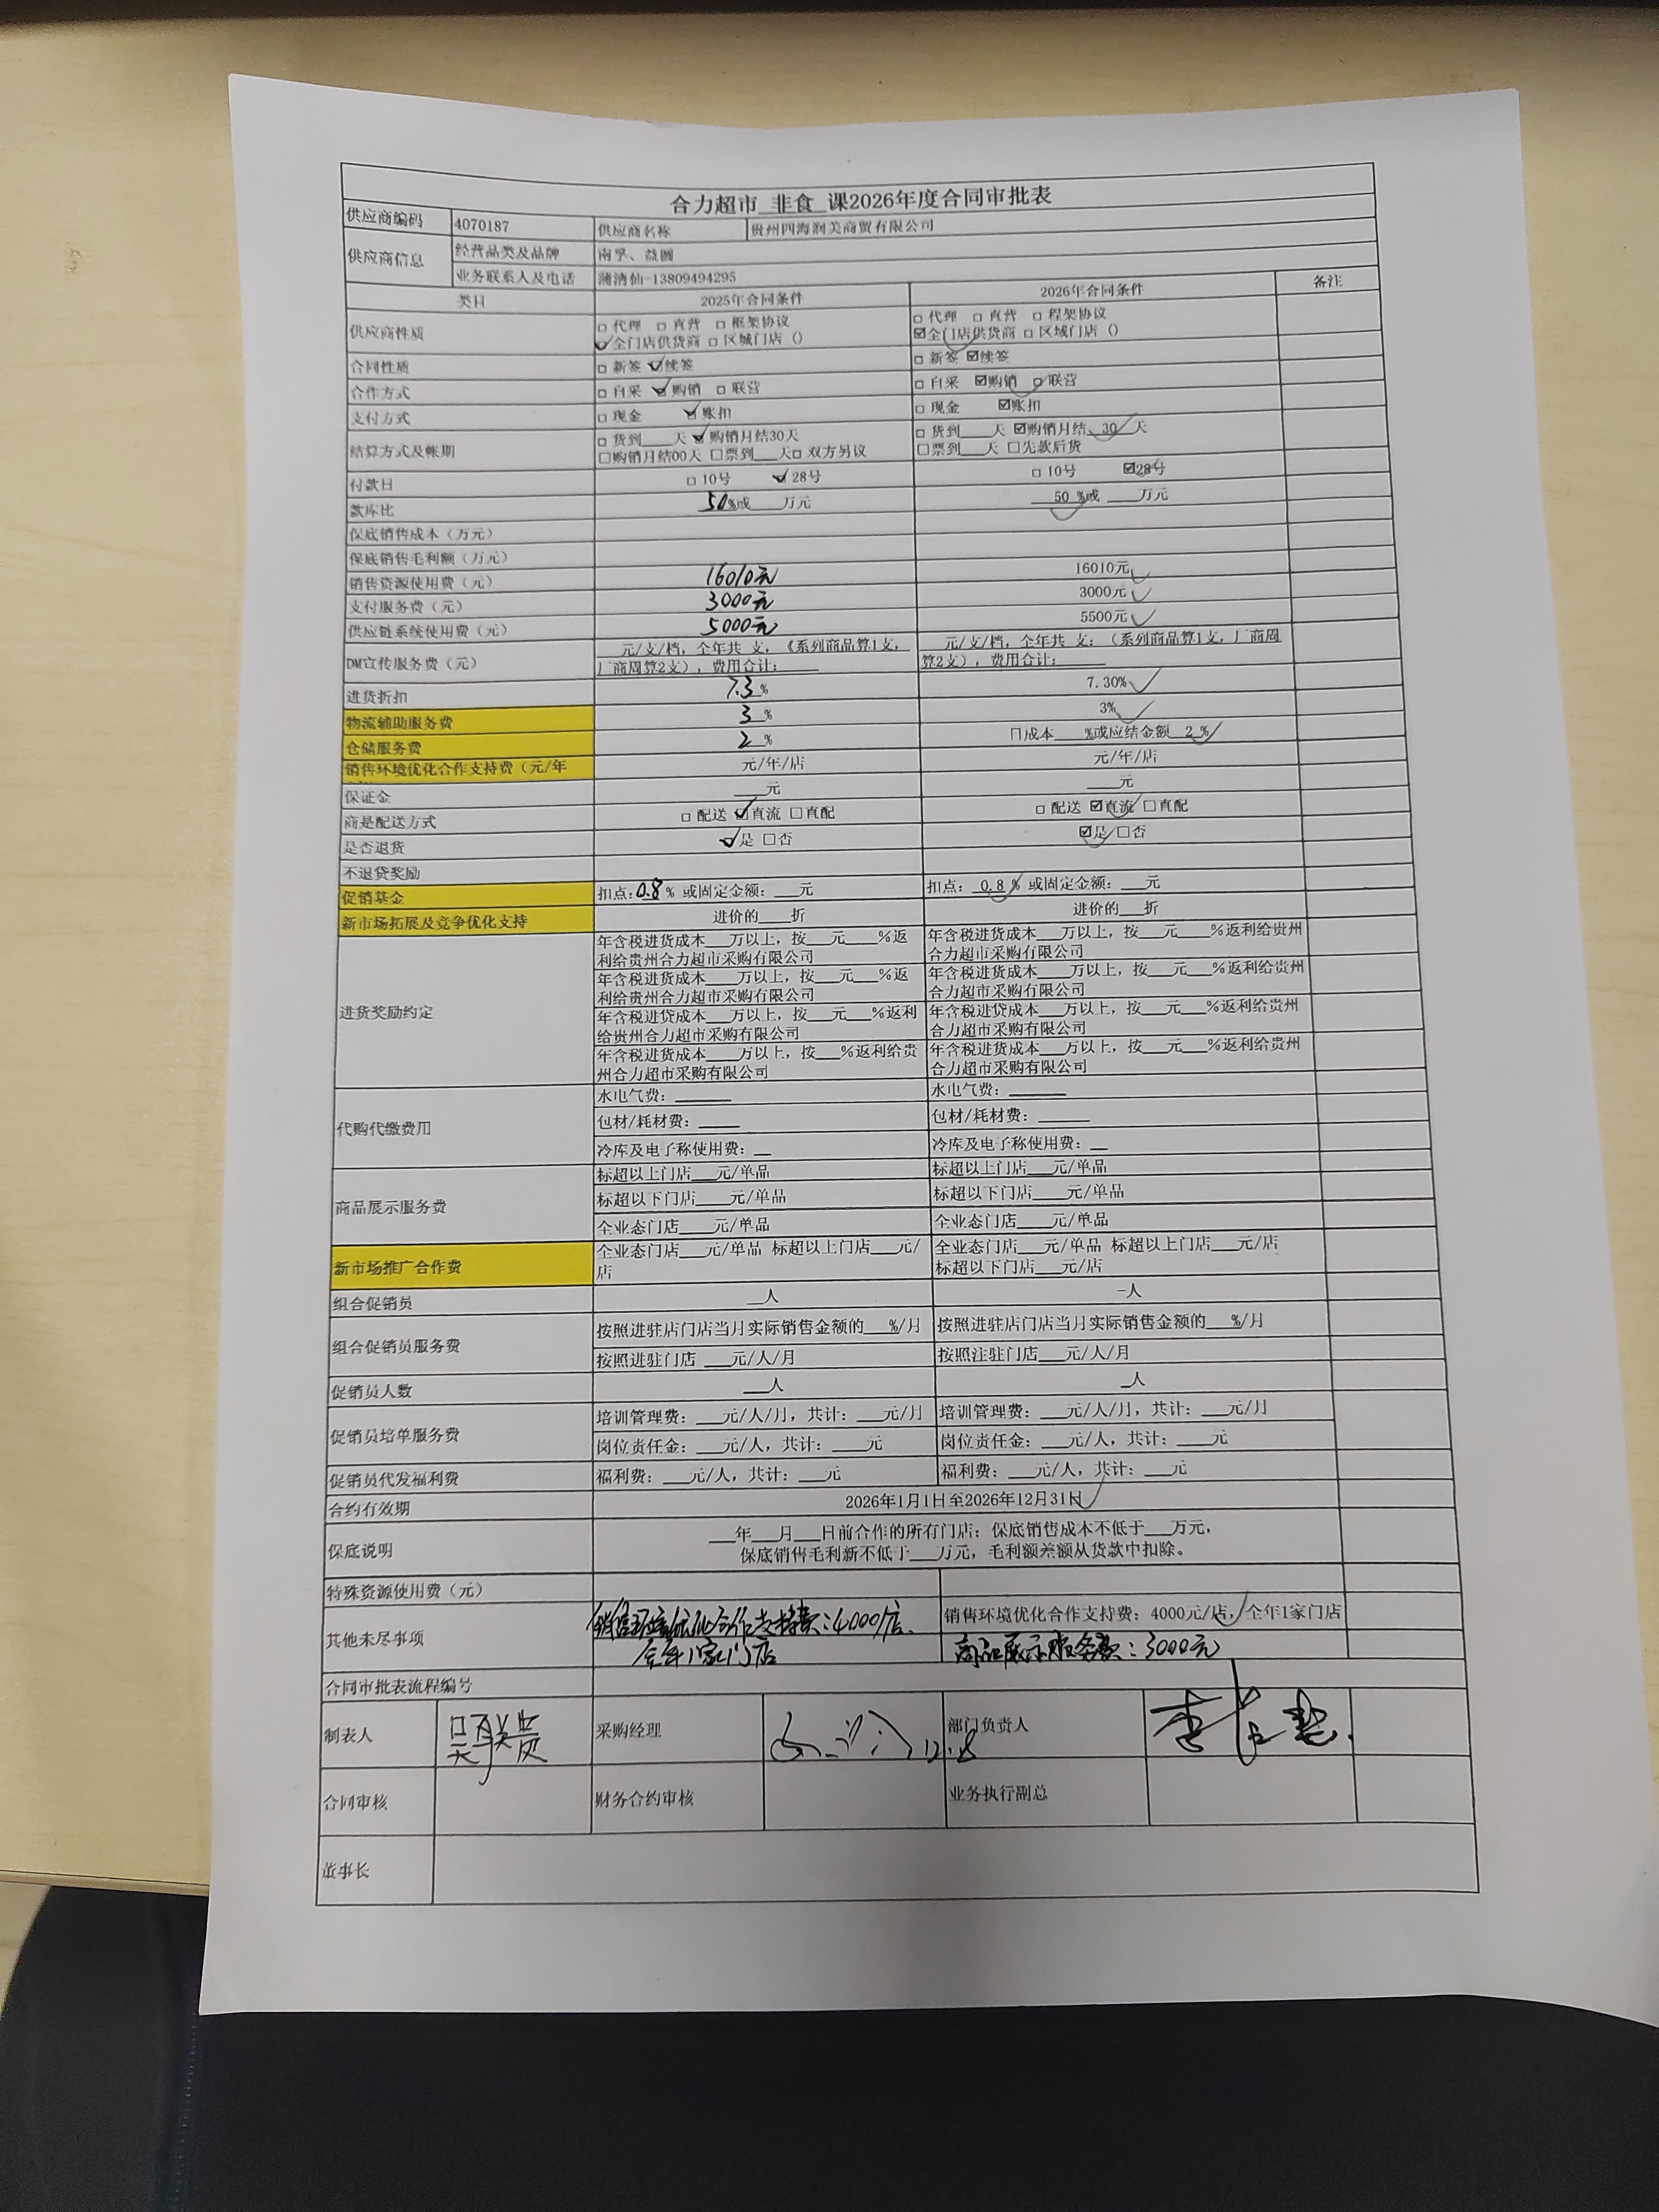 合力超市_非食_课2026年度合同审批表
供应商编码 4070187 供应商名称 贵州四海润美商贸有限公司
供应商信息 经营品类及品牌 南孚、益圆
业务联系人及电话 蒲清仙-13809494295
类目 2025年合同条件 2026年合同条件 备注
供应商性质 □代理 □直营 □框架协议 □代理 □直营 □程架协议
☑全门店供货商 □区域门店（） ☑全门店供货商 □区域门店（）
合同性质 □新签 ☑续签 □新签 ☑续签
合作方式 □自采 ☑购销 □联营 □自采 ☑购销 □联营
支付方式 □现金 ☑账扣 □现金 ☑账扣
结算方式及帐期 □货到___天 ☑购销月结30天 □货到___天 ☑购销月结_30_天
□购销月结00天 □票到___天□ 双方另议 □票到___天 □先款后货
付款日 □10号 ☑28号 □10号 ☑28号
款库比 50%或___万元 50 %或___万元
保底销售成本（万元）
保底销售毛利额（万元）
销售资源使用费（元） 16010元 16010元
支付服务费（元） 3000元 3000元
供应链系统使用费（元） 5000元 5500元
DM宣传服务费（元） ___元/支/档，全年共 支，（系列商品算1支， ___元/支/档，全年共 支；（系列商品算1支，厂商周
厂商周算2支），费用合计：____ 算2支），费用合计：____
进货折扣 7.3% 7.30%
物流辅助服务费 3% 3%
仓储服务费 2% 口成本___%或应结金额_2_%
销售环境优化合作支持费（元/年 元/年/店 元/年/店
保证金 ___元 ___元
商是配送方式 □配送 ☑直流 □直配 □配送 ☑直流 □直配
是否退货 ☑是 □否 ☑是 □否
不退贷奖励
促销基金 扣点：0.8% 或固定金额：___元 扣点：_0.8_% 或固定金额：___元
新市场拓展及竞争优化支持 进价的___折 进价的___折
进货奖励约定 年含税进货成本___万以上，按___元___%返 年含税进货成本___万以上，按___元___%返利给贵州
利给贵州合力超市采购有限公司 合力超市采购有限公司
年含税进货成本___万以上，按___元___%返 年含税进货成本___万以上，按___元___%返利给贵州
利给贵州合力超市采购有限公司 合力超市采购有限公司
年含税进货成本___万以上，按___元___%返利 年含税进贷成本___万以上，按___元___%返利给贵州
给贵州合力超市采购有限公司 合力超市采购有限公司
年含税进货成本___万以上，按___%返利给贵 年含税进货成本___万以上，按___元___%返利给贵州
州合力超市采购有限公司 合力超市采购有限公司
代购代缴费用 水电气费：____ 水电气费：____
包材/耗材费：____ 包材/耗材费：____
冷库及电子称使用费：__ 冷库及电子称使用费：__
商品展示服务费 标超以上门店___元/单品 标超以上门店___元/单品
标超以下门店___元/单品 标超以下门店___元/单品
全业态门店___元/单品 全业态门店___元/单品
新市场推广合作费 全业态门店___元/单品 标超以上门店___元/ 全业态门店___元/单品 标超以上门店___元/店
店 标超以下门店___元/店
组合促销员 __人 -人
组合促销员服务费 按照进驻店门店当月实际销售金额的___%/月 按照进驻店门店当月实际销售金额的___%/月
按照进驻门店 ___元/人/月 按照注驻门店___元/人/月
促销员人数 ___人 __人
促销员培单服务费 培训管理费：___元/人/月，共计：___元/月 培训管理费：___元/人/月，共计：___元/月
岗位责任金：___元/人，共计：____元 岗位责任金：___元/人，共计：___元
促销员代发福利费 福利费：___元/人，共计：___元 福利费：___元/人，共计：___元
合约有效期 2026年1月1日至2026年12月31日
保底说明 ___年___月___日前合作的所有门店；保底销售成本不低于___万元，
保底销售毛利新不低于___万元，毛利额差额从货款中扣除。
特殊资源使用费（元）
其他未尽事项 销售环境优化合作支持费：4000/店、 销售环境优化合作支持费：4000元/店，全年1家门店
全年1家门店 商品展示服务费：3000元
合同审批表流程编号
制表人 吴联贵 采购经理 12.8 部门负责人
合同审核 财务合约审核 业务执行副总
董事长